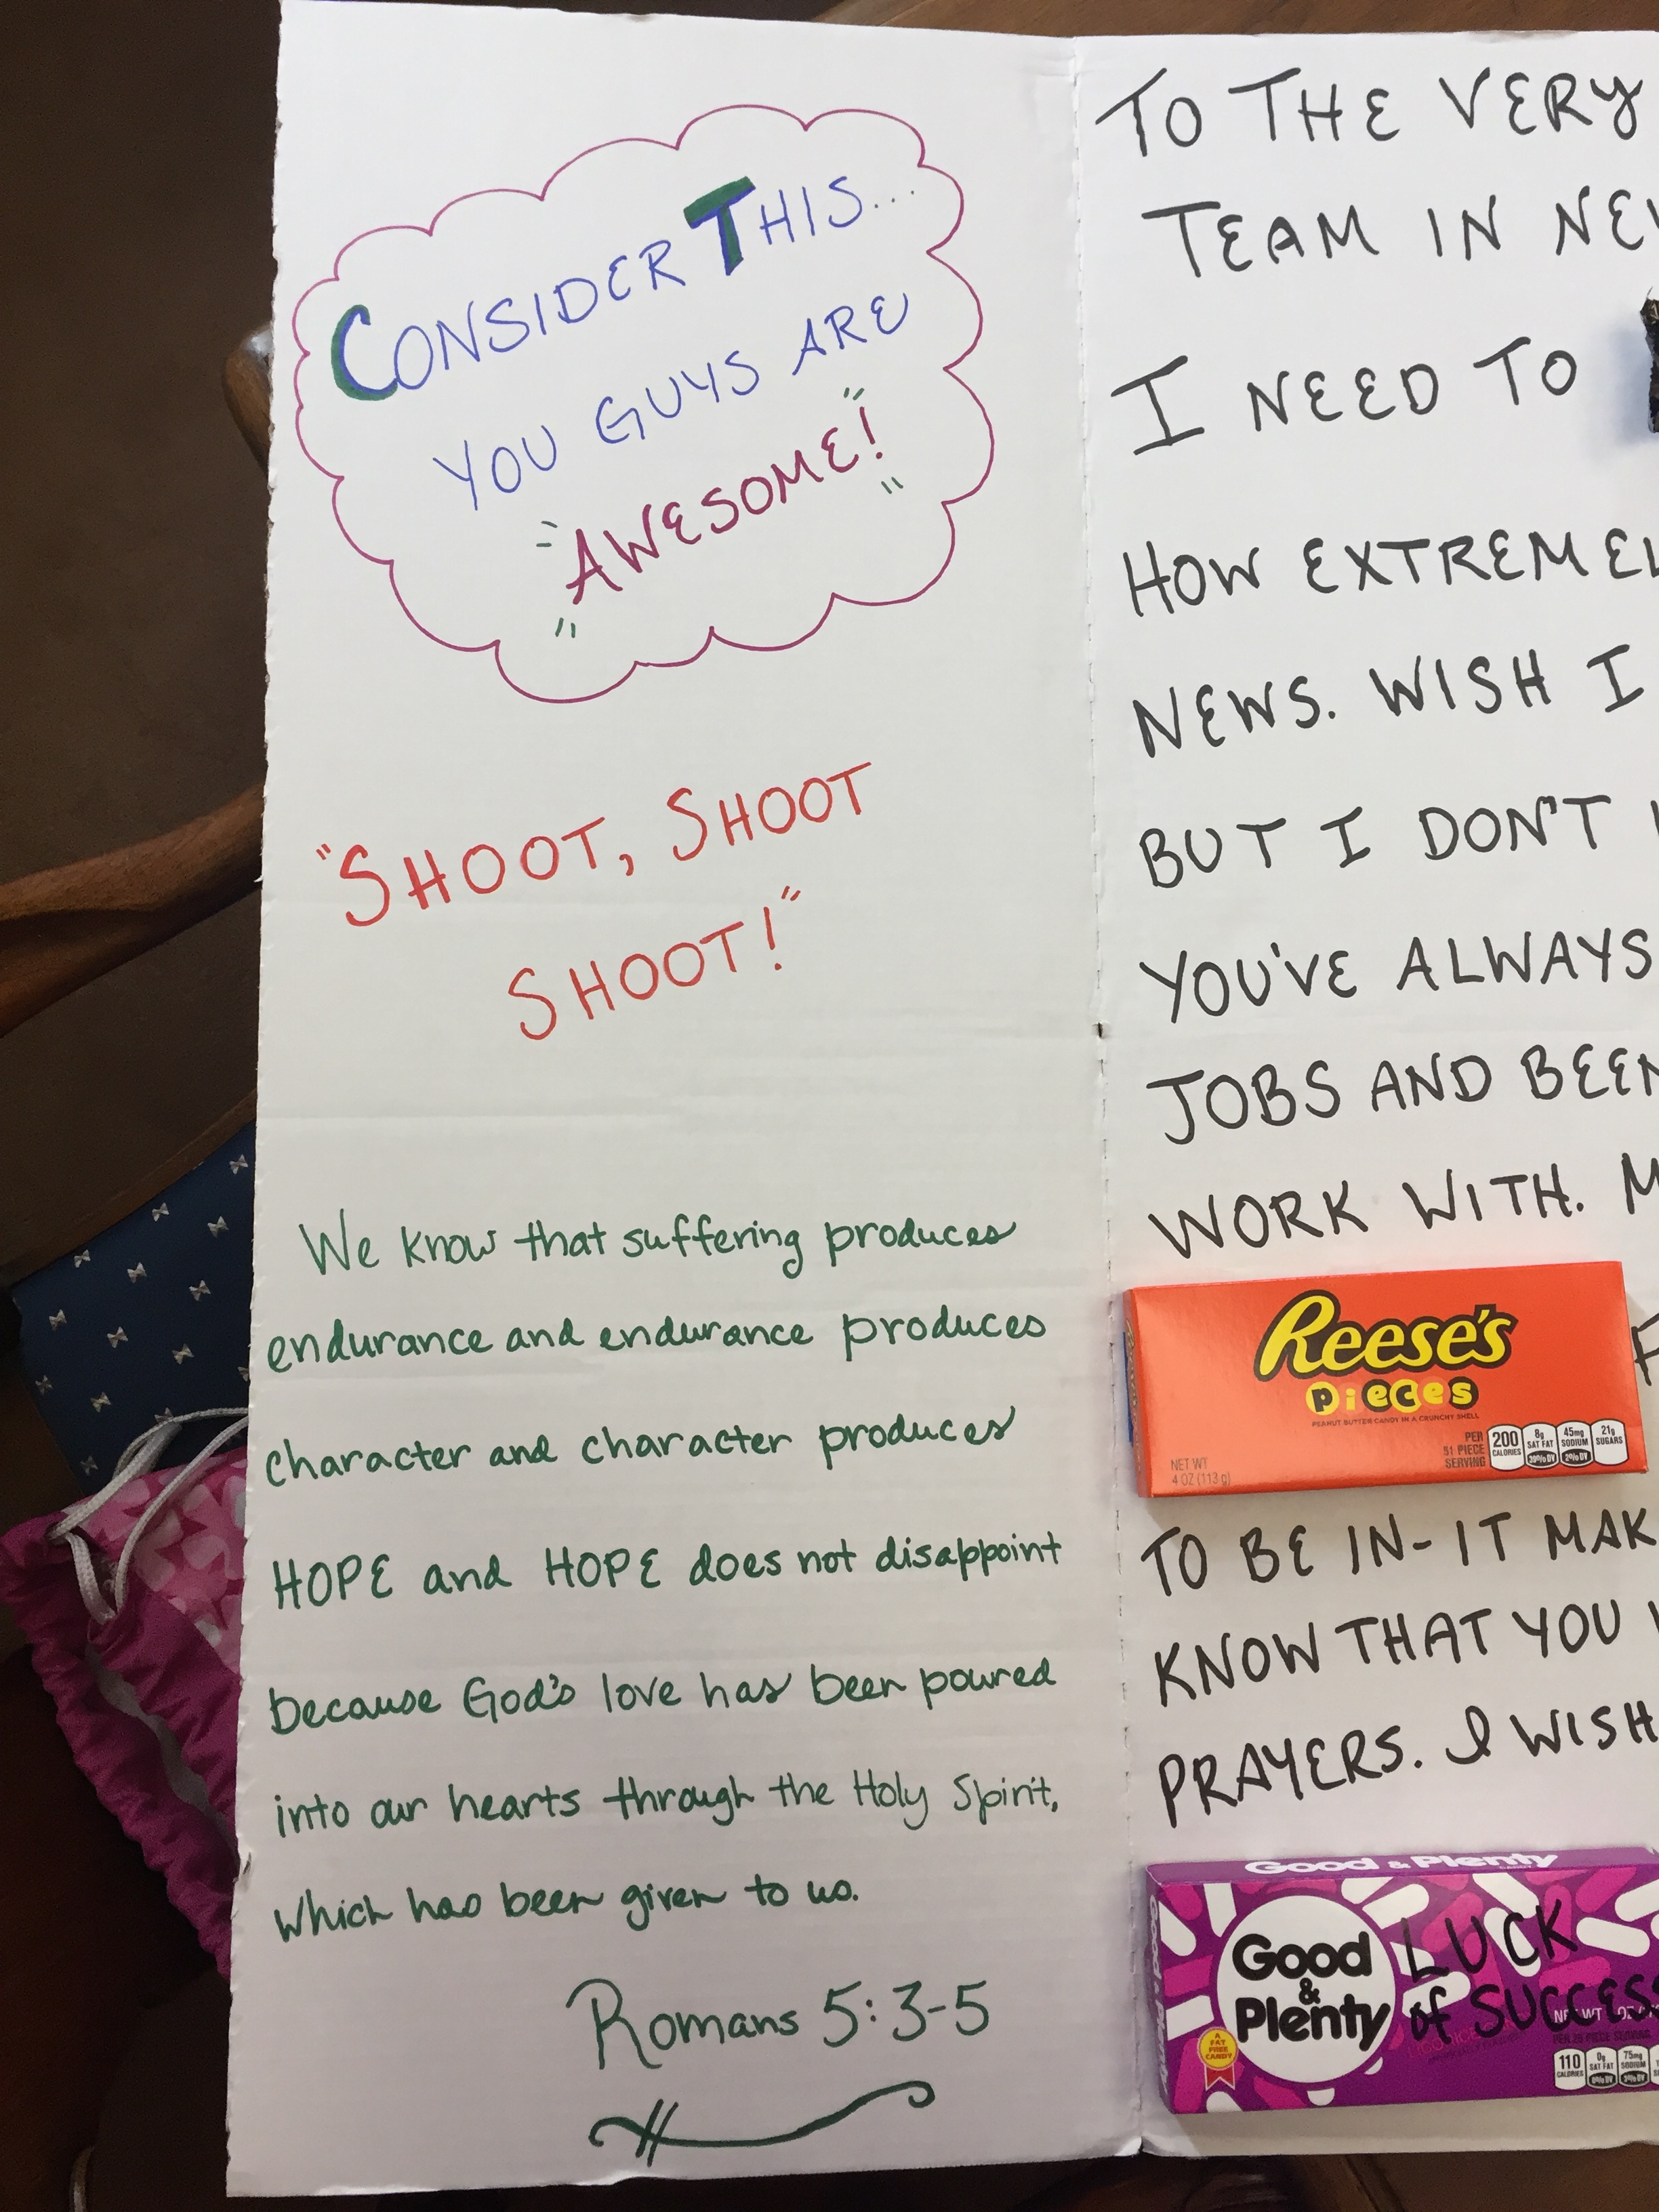 CONSIDER THIS...
YOU GUYS ARE
"AWESOME!"
"SHOOT, SHOOT
SHOOT!"
We know that suffering produces
endurance and endurance produces
character and character produces
HOPE and HOPE does not disappoint
because God's love has been poured
into our hearts through the Holy Spirit,
which has been given to us.
Romans 5:3-5
TO THE VERY
TEAM IN NEW
I NEED TO
HOW EXTREMEL
NEWS. WISH I
BUT I DON'T
YOU'VE ALWAYS
JOBS AND BEEN
WORK WITH. M
Reese's
Pieces
PEANUT BUTTER CANDY IN A CRUNCHY SHELL
NET WT
4 OZ (113 g)
PER
51 PIECE
SERVING
200
CALORIES
8g
SAT FAT
39% DV
45mg
SODIUM
2% DV
21g
SUGARS
F
TO BE IN-IT MAK
KNOW THAT YOU
PRAYERS. I WISH
Good & Plenty
Good
&
Plenty
LUCK
of SUCCESS
A
FAT
FREE
CANDY
110
CALORIES
0g
SAT FAT
0% DV
75mg
SODIUM
3% DV